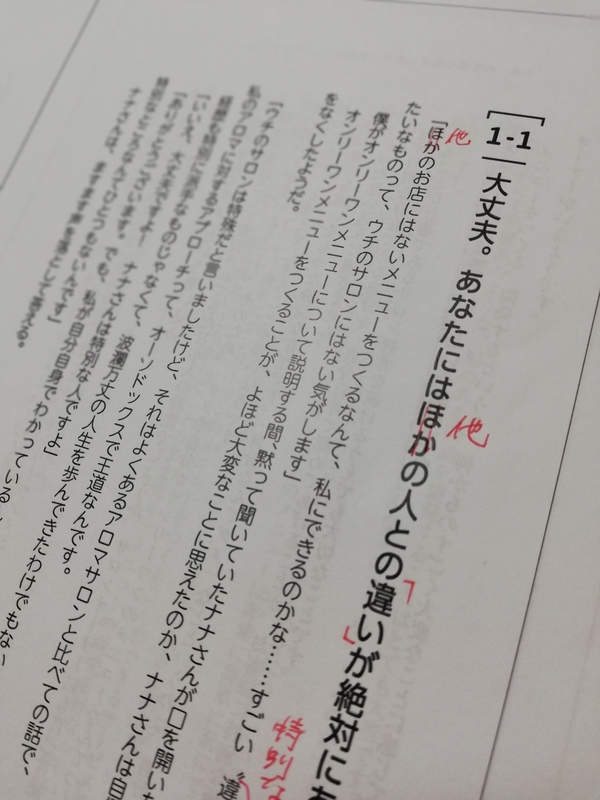 1-1
大丈夫。あなたにはほかの人との違いが絶対に
他
他
「ほかのお店にはないメニューをつくるなんて、私にできるのかな……すごい〝違
特別な
たいなものって、ウチのサロンにはない気がします」
僕がオンリーワンメニューについて説明する間、黙って聞いていたナナさんが口を開い
オンリーワンメニューをつくることが、よほど大変なことに思えたのか、ナナさんは自
をなくしたようだ。
「ウチのサロンは特殊だと言いましたけど、それはよくあるアロマサロンと比べての話で、
私のアロマに対するアプローチって、オーソドックスで王道なんです。
経歴も特別に派手なものじゃなくて、波瀾万丈の人生を歩んできたわけでもない
「いいえ、大丈夫ですよ！　ナナさんは特別な人ですよ」
「ありがとうございます。でも、私が自分自身でわかっている
特別なところなんてひとつもないんです」
ナナさんは、ますます声を落として答える。